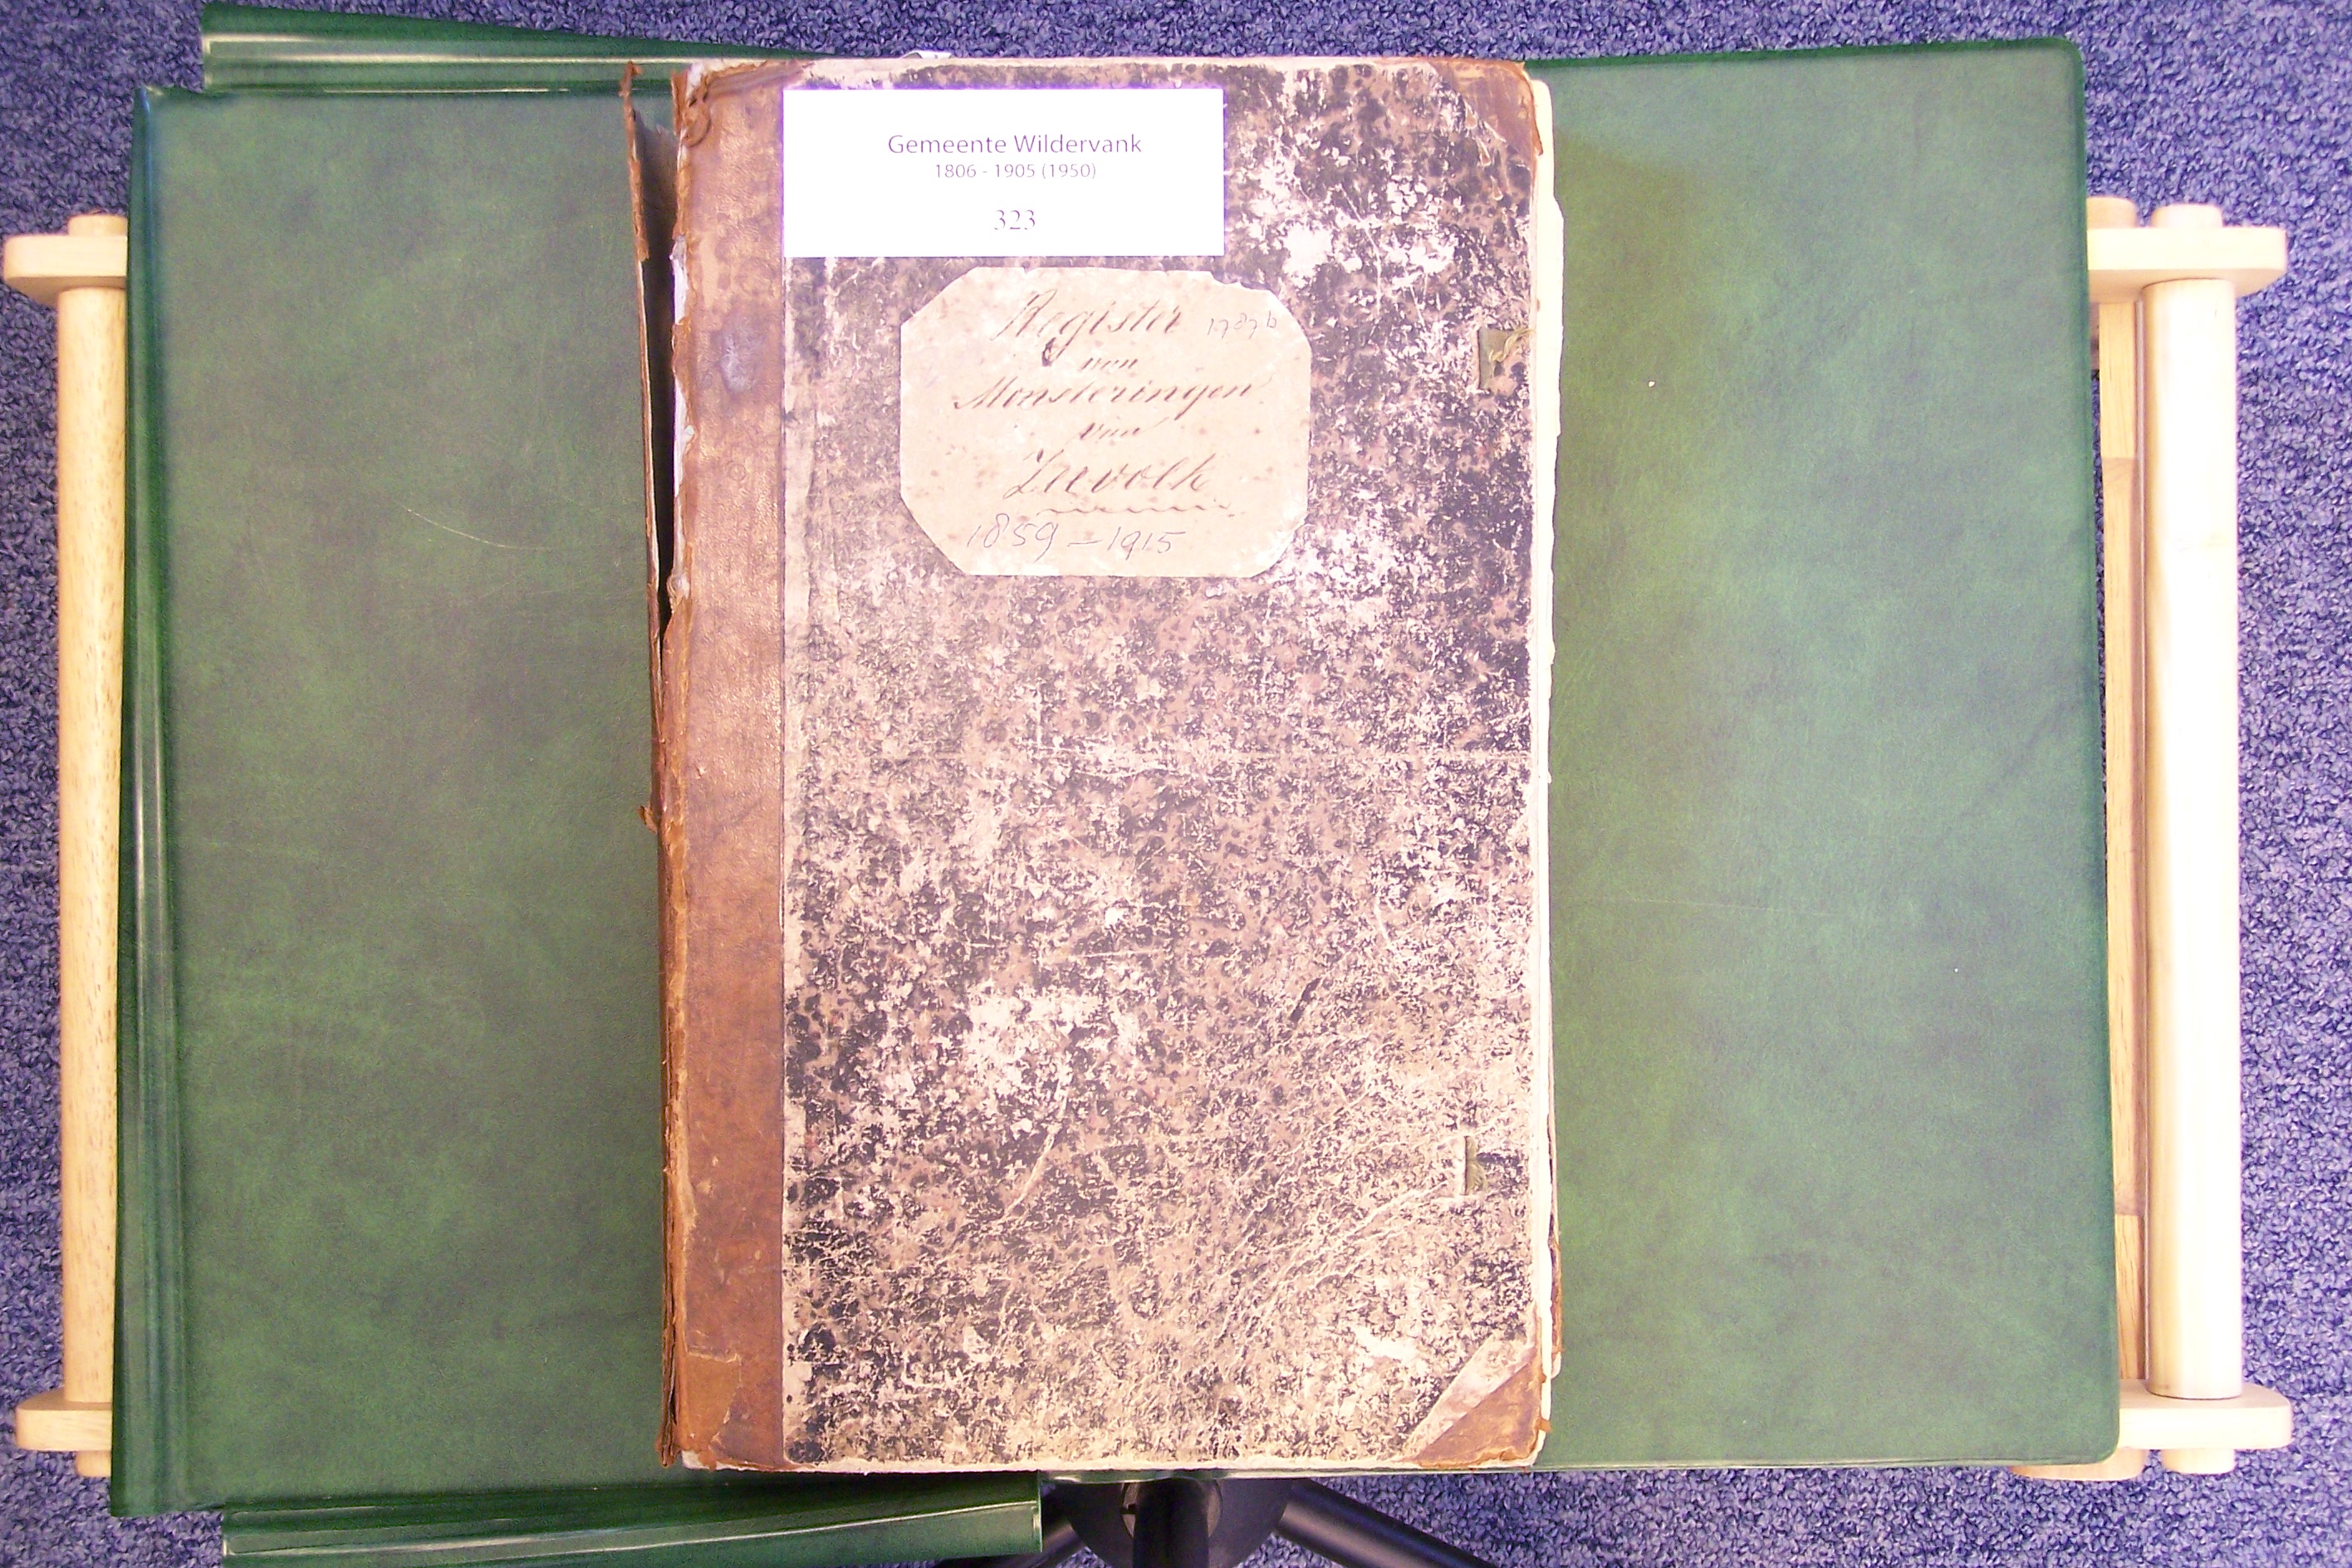 Gemeente Wildervank
1806 - 1905 (1950)
323
Register
van
Monsteringen
van
Zeevolk
1859 - 1915